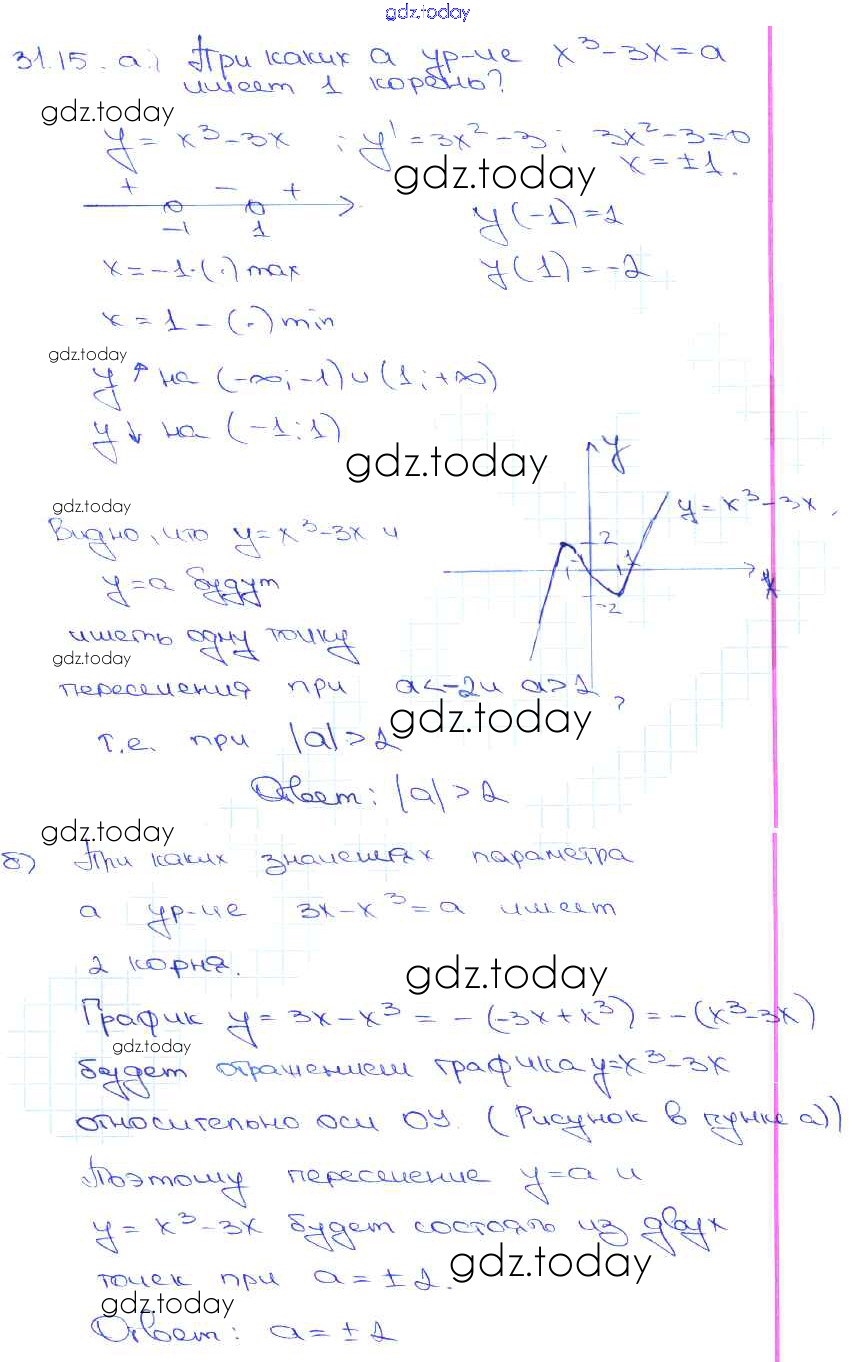 gdz.today
31.15. а) При каких а ур-ие x³-3x=a
имеет 1 корень?
gdz.today
y = x³-3x ; y' = 3x²-3; 3x²-3=0
gdz.today x = ±1.
+ - +
-1 1
y(-1)=2
x=-1·(·) max y(1)=-2
x = 1 - (·) min
gdz.today
y ↑ на (-∞; -1) ∪ (1; +∞)
y ↓ на (-1; 1)
gdz.today
y
y = x³-3x,
2
-1 1
-2
x
gdz.today
Видно, что y=x³-3x и
y=a будут
иметь одну точку
gdz.today
пересечения при a<-2 и a>2,
gdz.today
т.е. при |a|>2
Ответ: |a|>2
gdz.today
б) При каких значениях параметра
a ур-ие 3x-x³=a имеет
2 корня.
gdz.today
График y=3x-x³ = -(-3x+x³) = -(x³-3x)
gdz.today
будет отражением графика y=x³-3x
относительно оси OY. (Рисунок в пункте а))
Поэтому пересечение y=a и
y = x³-3x будет состоять из двух
gdz.today
точек при a=±2.
gdz.today
Ответ: a=±2